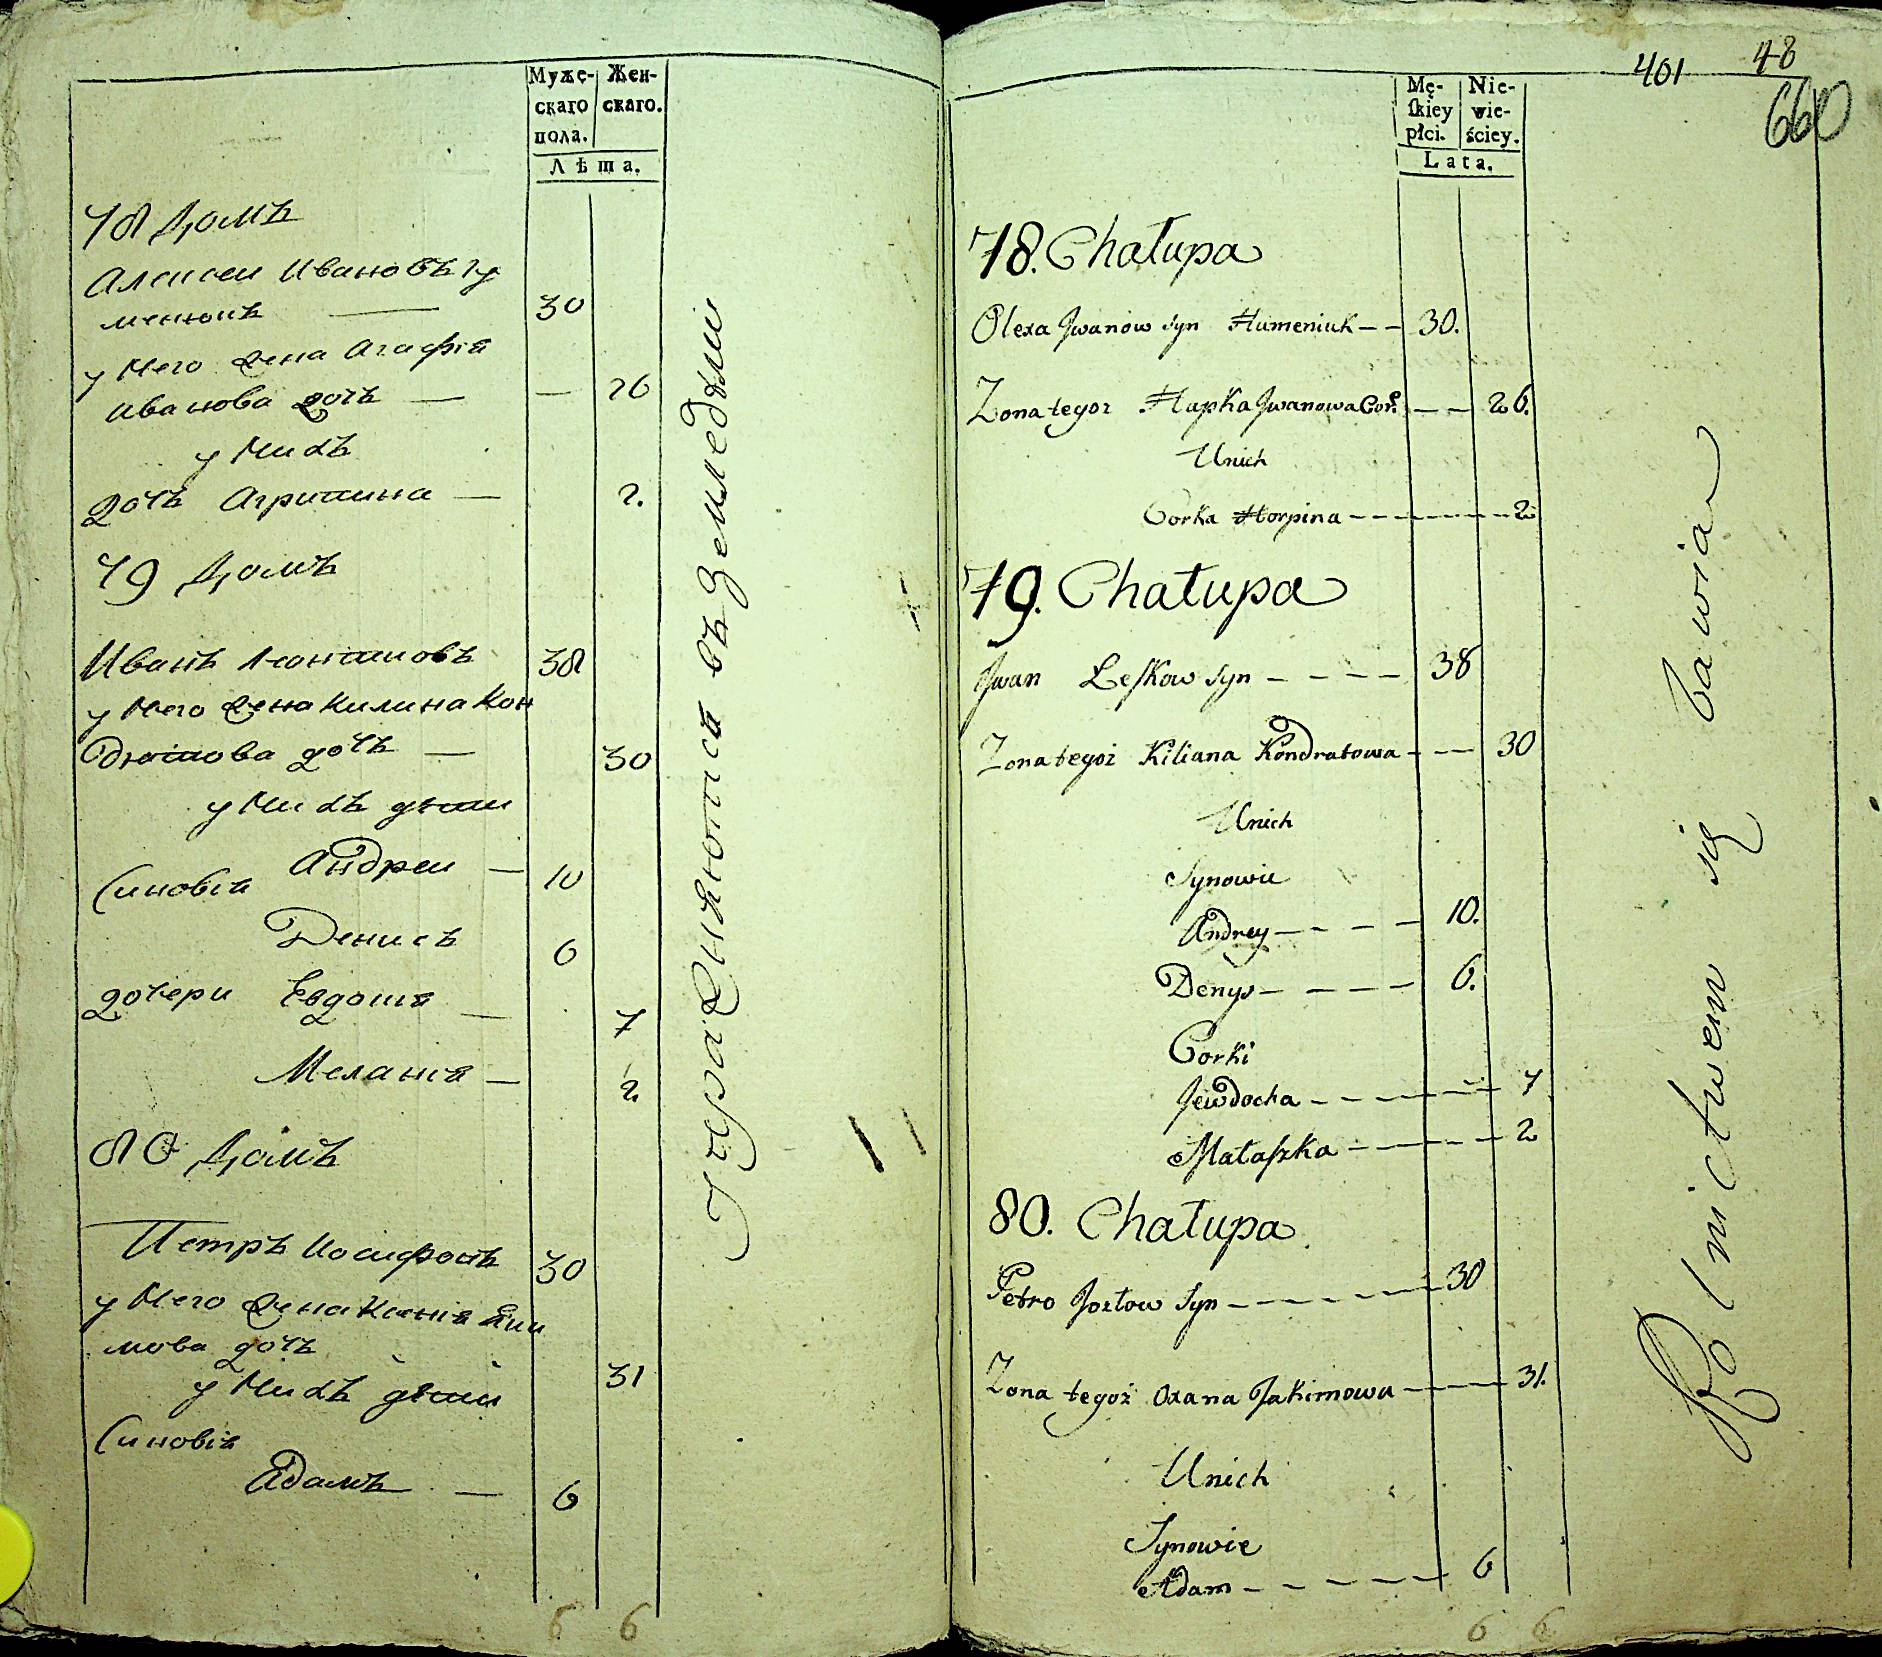 Муже- Жен-
скаго скаго.
пола.
Лѣта.
78 Домъ
Алексеи Ивановъ Гу
менюкъ — 30
у Него Жена Агафія
Иванова дочь — — 26
у Нихъ
дочь Агрипина — 2.
79 Домъ
Иванъ Леонтиовъ 38
у Него Жена Килина Кон
дратова дочь — 30
у Нихъ дѣти
Синовія Андреи — 10
Денисъ 6
дочери Евдокия — 7
Мелания — 2
80 Домъ
Петръ Иосифовъ 30
у Него Жена Ксения Яки
мова дочь 31
у Нихъ дѣти
Синовія
Адамъ — 6
6 6
въ Земледѣлии
401 48
660
Mę- Nie-
skiey wie-
płci. ściey.
Lata.
78. Chałupa
Olexa Jwanów syn Humeniuk — — 30.
Zona tegoz Hapka Jwanowa Cor. — — 26.
Unich
Corka Horpina — — — 2
79. Chałupa
Jwan Leśkow syn — — — — 38
Zona tegoż Kiliana Kondratowa — — 30
Unich
Synowie
Andrey — — — — 10.
Denys — — — — 6.
Corki
Jewdocha — — — 7
Małaszka — — — 2
80. Chałupa
Petro Jozłow syn — — — 30
Zona tegoż Oxana Jakimowa — — 31.
Unich
Synowie
Adam — — — — 6
6 6
Rolnictwem się bawia